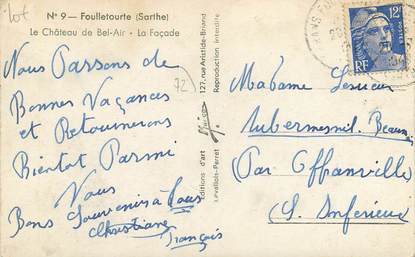 Lot
N° 9 — Foulletourte (Sarthe)
Le Château de Bel-Air - La Façade
Nous Passons de
Bonnes Vacances
et Retournerons
Bientot Parmi
Vous
Bons Souvenirs à Tous
Christiane
François
72
Editions d'art
Levallois-Perret
127, rue Aristide-Briand
Reproduction interdite
12F
POSTES
RF
Madame Lesueur
Aubermesnil Beaumais
Par Offranville
(S. Inferieure)